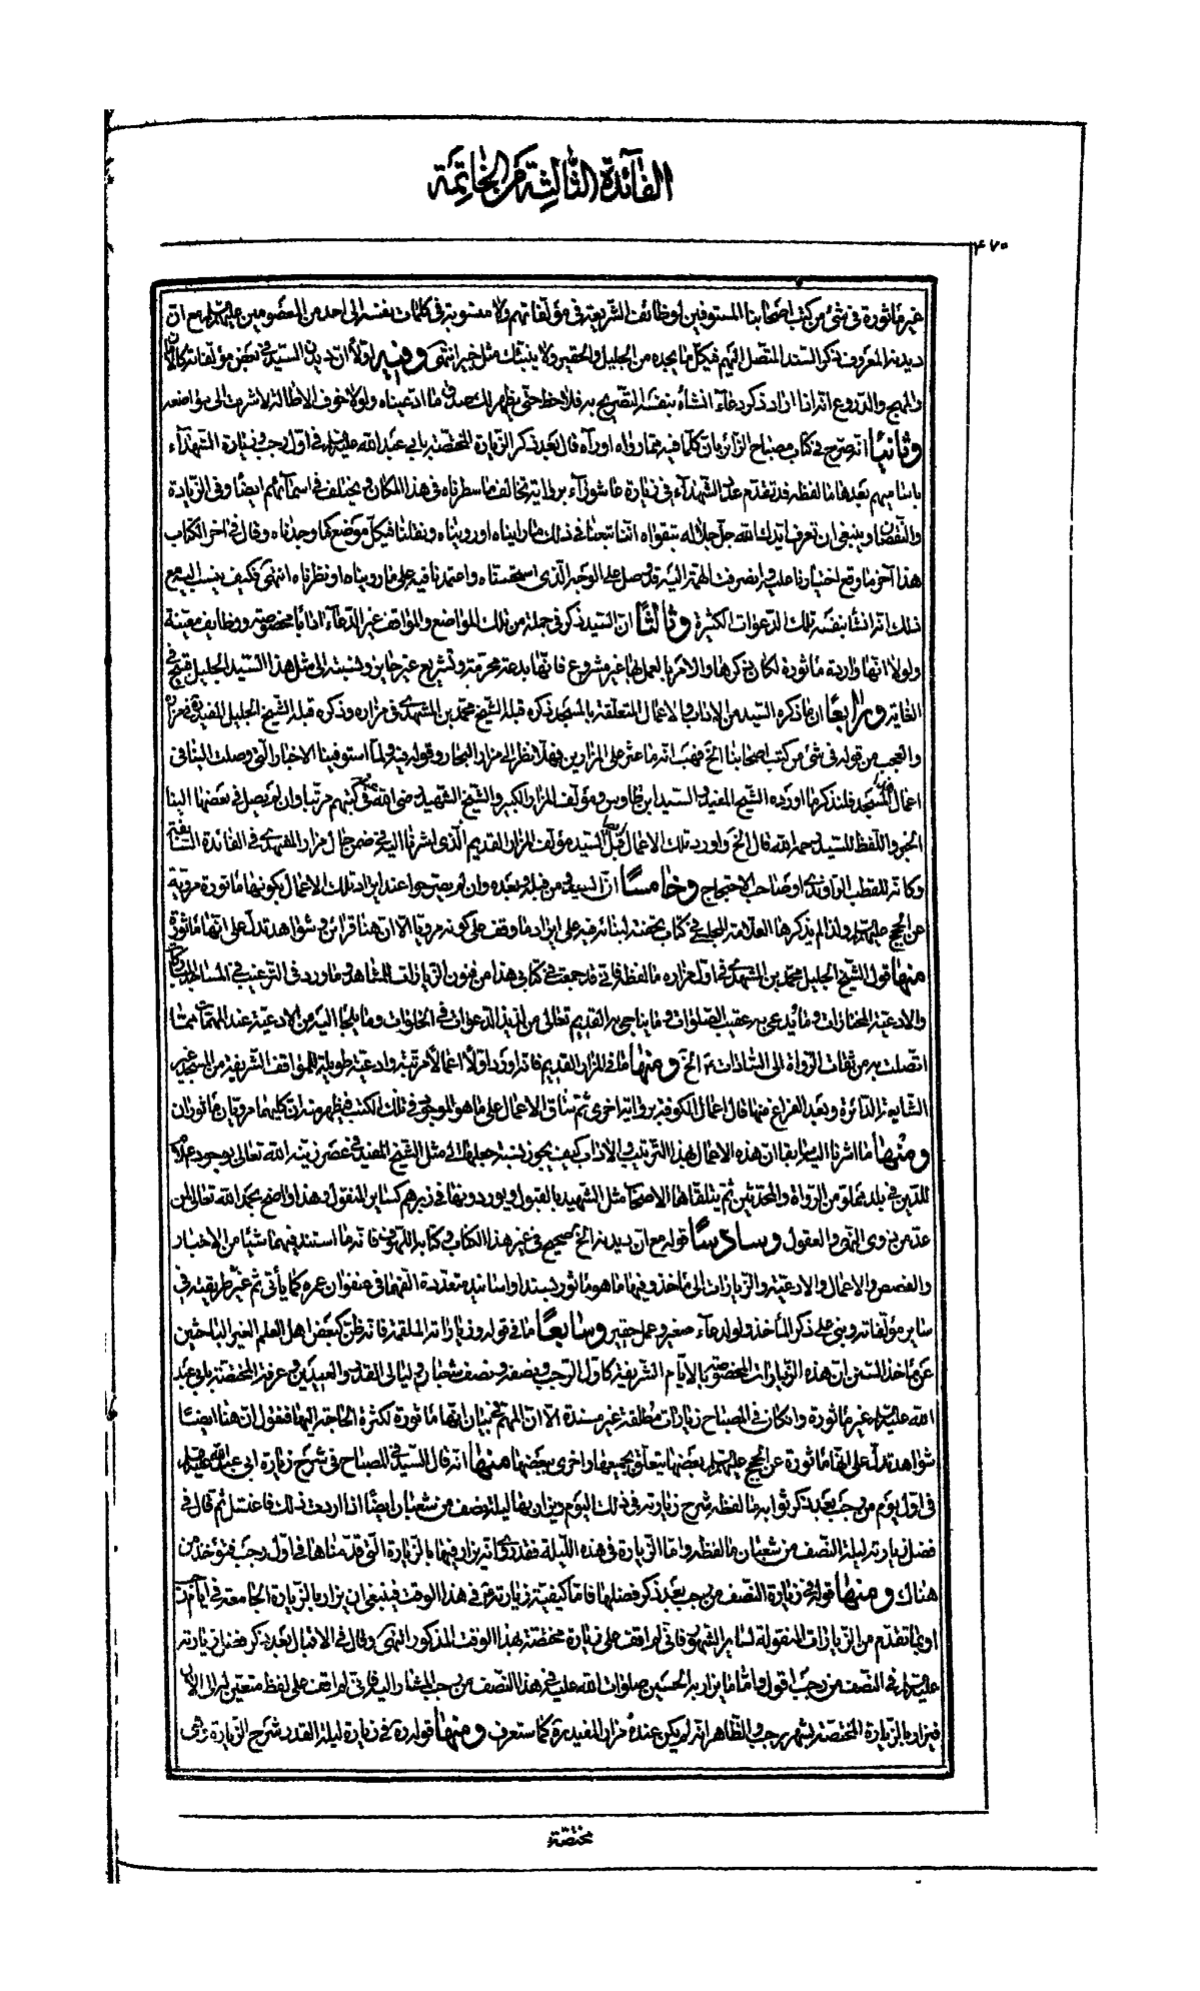 الفائدة الثالثة من الخاتمة
٤٧٠
غير مأثورة في شئ من كتب أصحابنا المستوفين لوظائف الشريعة في مؤلفاتهم ولا منسوبة في كلمات نفسه إلى أحد من المعصومين عليهم السلام مع ان
ديدنه المعروف ذكر السند المتصل إليهم في كل ما يجده من الجليل والحقير ولا ينبئك مثل خبير انتهى وفيه أولا ان ديدن السيد في بعض مؤلفاته
والمهج والدروع انه إذا أراد ذكر دعاء أنشأه بنفسه التصريح به فلاحظ حتى يظهر لك صدق ما ادعيناه ولولا خوف الإطالة لأشرت إلى مواضعه
وثانيا انه صرح في كتاب مصباح الزائر بان كلما فيه مما رواه أو رآه قال بعد ذكر الزيارة المختصة بابي عبد الله عليه السلام في أول رجب وفي زيارة الشهداء
بأساميهم بعدها ما لفظه قد تقدم عدد الشهداء في زيارة عاشوراء برواية تخالف ما سطرناه في هذا المكان ويختلف في أسمائهم أيضا وفي الزيادة
والنقصان وينبغي ان تعرف أيدك الله جل جلاله بتقواه اننا تبعنا في ذلك ما رأيناه أو رويناه ونقلنا في كل موضع كما وجدناه وقال في آخر الكتاب
هذا آخر ما وقع اختيارنا عليه وانصرفت الهمة إليه قد وصل على الوجه الذي استحسناه واعتمدنا فيه على ما رويناه أو نظرناه انتهى فكيف ينسب إليه مع
ذلك انه أنشأ بنفسه تلك الدعوات الكثيرة وثالثا ان السيد ذكر في جملة من تلك المواضع والمواقف غير الدعاء آدابا مخصوصة ووظائف معينة
ولولا انها واردة مأثورة لكان ذكرها والامر بالعمل بها غير مشروع فإنها بدعة محرمة وتشريع غير جايز ونسبته إلى مثل هذا السيد الجليل قبيح في
الغاية ورابعا ان ما ذكره السيد من الآداب والاعمال المتعلقة بالمسجد ذكره قبله الشيخ محمد بن المشهدي في مزاره وذكره قبله الشيخ الجليل المفيد
والعجب من قوله في شئ من كتب أصحابنا الخ فهب انه ما عثر على المزارين فهلا نظر إلى مزار البحار وقوله فيه ولما استوفينا الاخبار التي وصلت إلينا في
اعمال المسجد فلنذكر ما أورده الشيخ المفيد والسيد ابن طاوس ومؤلف المزار الكبير والشيخ الشهيد رضي الله عنهم في كتبهم مرتبا وان لم يصل في بعضها إلينا
الخبر واللفظ للسيد رحمه الله قال الخ وأورد تلك الاعمال قبل السيد مؤلف المزار القديم الذي أشرنا إليه في ضمن حال مزار المشهدي في الفائدة السابقة
وكأنه للقطب الراوندي أو صاحب الاحتجاج وخامسا ان السيد ومن قبله وبعده وان لم يصرحوا عند ايراد تلك الاعمال بكونها مأثورة مروية
عن الحجج عليهم السلام ولذا لم يذكرها العلامة المجلسي في كتاب تحفته لبنائه فيه على ايراد ما وقف على كونه مرويا الا ان هنا قرائن وشواهد تدل على انها مأثورة
منها قول الشيخ الجليل محمد بن المشهدي في أول مزاره ما لفظه فاني قد جمعت في كتابي هذا من فنون الزيارات للمشاهد وما ورد في الترغيب في المساجد المباركات
والأدعية المختارات وما يدعى به عقيب الصلوات وما يناجى به القديم تعالى من لذيذ الدعوات في الخلوات وما يلجأ إليه من الأدعية عند المهمات مما
اتصلت به من ثقات الرواة إلى السادات الخ ومنها ما في المزار القديم فإنه أورد أولا اعمالا مرتبة وادعية طويلة للمواقف الشريفة من المسجد غير
الشايعة الدائرة وبعد الفراغ منها قال اعمال الكوفة برواية أخرى ثم ساق الاعمال على ما هو الموجود في تلك الكتب فيظهر منه ان كليهما مرويان مأثوران
ومنها ما أشرنا إليه سابقا ان هذه الاعمال بهذا الترتيب والآداب كيف يجوز نسبة جعلها إلى مثل الشيخ المفيد في عصر زينه الله تعالى بوجود
للدين في بلد مملو من الرواة والمحدثين ثم يتلقاها الأصحاب مثل الشهيد بالقبول ويوردونها في زبرهم كساير النقول وهذا واضح بحمد الله تعالى لمن
عد من ذوي النهى والعقول وسادسا قوله مع ان ديدنه الخ صحيح في غير هذا الكتاب وكتابه اللهوف فإنه ما استند فيهما شيئا من الاخبار
والقصص والاعمال والأدعية والزيارات إلى مأخذ وفيها ما هو مأثور بسند أو أسانيد متعددة الفهما في عنفوان عمره كما يأتي ثم غير طريقته في
ساير مؤلفاته وبنى على ذكر المأخذ ولو لدعاء صغير وعمل حقير وسابعا ما في قوله وزياراته الملفقة فإنه ظن كبعض أهل العلم الغير الباحثين
عن مأخذ السنن ان هذه الزيارات المخصوصة بالأيام الشريفة كأول الرجب ونصفه ونصف شعبان وليالي القدر والعيدين وعرفة المختصة بابي عبد
الله عليه السلام غير مأثورة وان كان في المصباح زيارات مطلقة غير مسندة الا ان المهم تبيان انها مأثورة لكثرة الحاجة إليها فنقول ان هنا أيضا
شواهد تدل على انها مأثورة عن الحجج عليهم السلام بعضها يتعلق بجميعها وأخرى ببعضها منها انه قال السيد في المصباح في شرح زيارة أبي عبد الله عليه السلام
في أول يوم من رجب بعد ذكر ثوابه ما لفظه شرح زيارته في ذلك اليوم ويزار بها ليلة نصف من شعبان أيضا إذا أردت ذلك فاغتسل ثم قال في
فضل زيارته ليلة النصف من شعبان ما لفظه واما الزيارة في هذه الليلة فقد روى انه يزار فيها بالزيارة التي قدمناها في أول رجب فتؤخذ من
هناك ومنها قوله في زيارة النصف من رجب بعد ذكر فضلها فاما كيفية زيارته في هذا الوقت فينبغي ان يزار بالزيارة الجامعة في أيام رجب
أو بما تقدم من الزيارات المنقولة لساير الشهور فاني لم أقف على زيارة مختصة بهذا الوقت المذكور انتهى وقال في الاقبال بعد ذكر فضل زيارته
عليه السلام في النصف من رجب أقول واما ما يزار به الحسين صلوات الله عليه في هذا النصف من رجب المشار إليه فاني لم أقف على لفظ متعين له إلى الآن
فيزار بالزيارة المختصة بشهر رجب والظاهر انه لم يكن عنده مزار المفيد ره كما ستعرف ومنها قوله ره في زيارة ليلة القدر شرح الزيارة وهي
مختصة